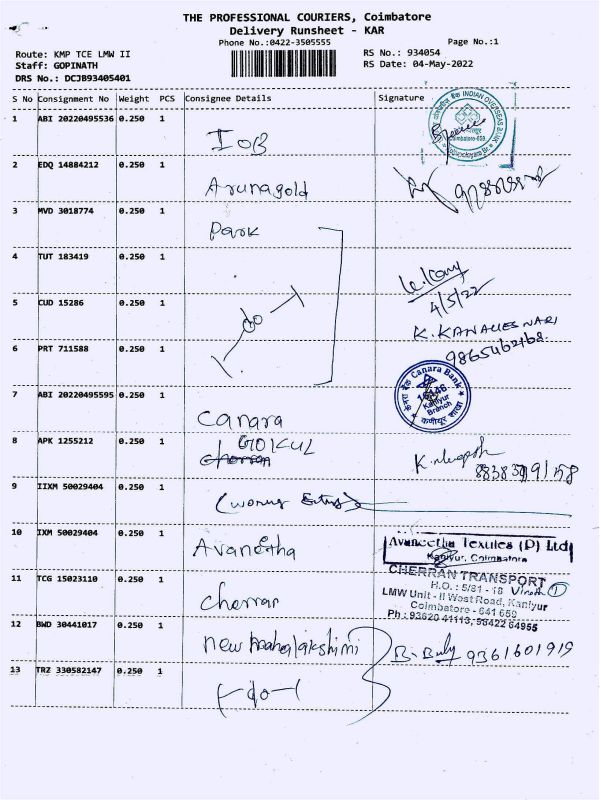 THE PROFESSIONAL COURIERS, Coimbatore
Delivery Runsheet - KAR
Phone No.:0422-3505555 Page No.:1
Route: KMP TCE LMW II RS No.: 934054
Staff: GOPINATH RS Date: 04-May-2022
DRS No.: DCJB93405401
S No Consignment No Weight PCS Consignee Details Signature
1 ABI 20220495536 0.250 1 IOB
INDIAN OVERSEAS BANK
2 EDQ 14884212 0.250 1 Arunagold
3 MVD 3018774 0.250 1 Park
4 TUT 183419 0.250 1
4/5/22
5 CUD 15286 0.250 1 do
6 PRT 711588 0.250 1 9865462768.
7 ABI 20220495595 0.250 1 Canara
Canara Bank
Kaniyur
Branch
8 APK 1255212 0.250 1 GOKUL
9 IIXM 50029404 0.250 1 (Wrong Entry)
10 IXM 50029404 0.250 1 Avaneetha
Avaneetha Textiles (P) Ltd
Kaniyur, Coimbatore
11 TCG 15023110 0.250 1 Cherran
CHERRAN TRANSPORT
H.O. : 5/81 - 18
LMW Unit - II West Road, Kaniyur
Coimbatore - 641 659
Ph : 93620 41113, 98422 64955
12 BWD 30441017 0.250 1 New Mahalakshimi 9361601919
13 TRZ 330582147 0.250 1 do